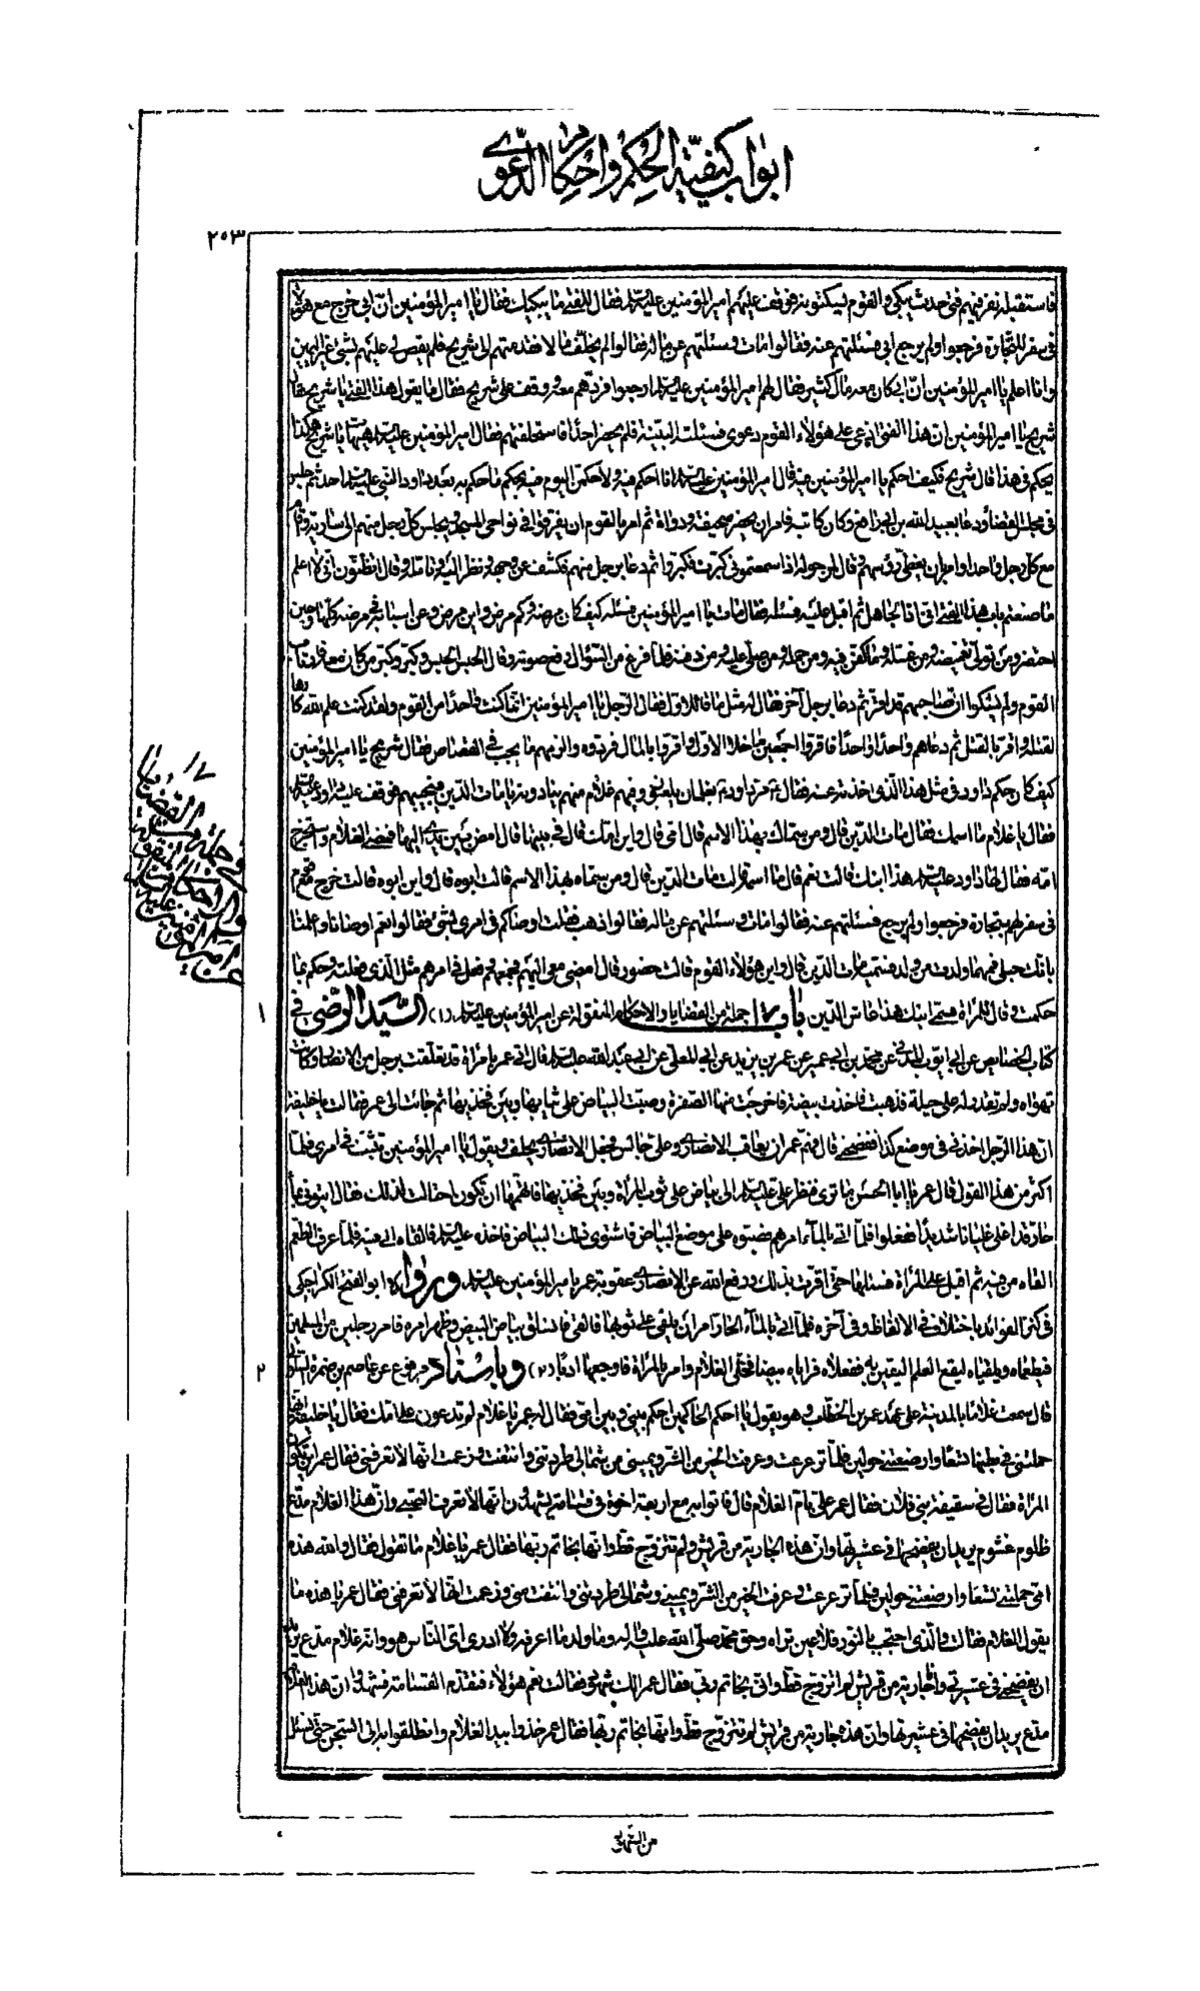 ابواب كيفية الحكم واحكام الدعوى
٢٥٣
فاستقبله نفر فيهم فتى حدث يبكى والقوم ليسكتونه فوقف عليهم امير المؤمنين عليه السلام فقال للفتى ما يبكيك فقال يا امير المؤمنين ان ابى خرج مع هؤلاء
فى سفر للتجارة فرجعوا ولم يرجع ابى فسئلتهم عنه فقالوا مات وسئلتهم عن ماله فقالوا لم يخلف مالا فقدمتهم الى شريح فلم يقض لى عليهم بشئ غير اليمين
وانا اعلم يا امير المؤمنين ان ابى كان معه مال كثير فقال لهم امير المؤمنين عليه السلام ارجعوا فردهم معه ووقف على شريح فقال ما يقول هذا الفتى يا شريح فقال
شريح يا امير المؤمنين ان هذا الفتى ادعى على هؤلاء القوم دعوى فسئلته البينة فلم يحضر احدا فاستحلفتهم فقال امير المؤمنين عليه السلام هيهات يا شريح هكذا
يحكم فى هذا قال شريح فكيف احكم يا امير المؤمنين فيه قال امير المؤمنين عليه السلام انا احكم فيه ولاحكمن اليوم فيه بحكم ما حكم به بعد داود النبى عليه السلام احد ثم جلس
فى مجلس القضاء ودعا بعبيد الله بن ابى رافع وكان كاتبه فامر ان يحضر صحيفة ودواة ثم امر بالقوم ان يفرقوا فى نواحى المسجد ويجلس كل رجل منهم الى سارية واقام
مع كل رجل واحدا وامر بان يغطى رؤسهم وقال لمن حوله اذا سمعتمونى كبرت فكبروا ثم دعا برجل منهم فكشف عن وجهه ونظر اليه وتامله وقال اتظنون انى لا اعلم
ما صنعتم باب هذا الفتى انى اذا لجاهل ثم اقبل عليه فسئله فقال مات يا امير المؤمنين فسئله كيف كان مرضه وكم مرض واين مرض وعن اسبابه فى مرضه كلها وحين
احتضر ومن تولى تغميضه ومن غسله وما كفن فيه ومن حمله ومن صلى عليه ومن دفنه فلما فرغ من السؤال رفع صوته وقال الحبس الحبس وكبر وكبر من كان معه فارتاب
القوم ولم يشكوا ان صاحبهم قد اقر ثم دعا برجل آخر فقال له مثل ما قال للاول فقال الرجل يا امير المؤمنين انما كنت واحدا من القوم ولقد كنت علم الله كارها
لقتله واقر بالقتل ثم دعاهم واحدا واحدا فاقروا اجمعين ما خلا الاول واقروا بالمال فردوه والزمهم ما يجب فى القصاص فقال شريح يا امير المؤمنين
كيف كان حكم داود فى مثل هذا الذى اخذته عنه فقال مر داود بغلمان يلعبون وفيهم غلام منهم ينادونه يا مات الدين فيجيبهم فوقف عليه داود عليه السلام
فقال يا غلام ما اسمك فقال مات الدين قال ومن سماك بهذا الاسم قال امى قال واين امك قال فى بيتها قال امض بين يدى اليها فمضى الغلام واستخرج
امه فقال لها داود عليه السلام هذا ابنك قالت نعم قال ما اسمه قالت مات الدين قال ومن سماه بهذا الاسم قالت ابوه قال واين ابوه قالت خرج مع قوم
فى سفر لهم بتجارة فرجعوا ولم يرجع فسئلتهم عنه فقالوا مات وسئلتهم عن ماله فقالوا ذهب فقلت اوصاكم فى امرى بشئ فقالوا نعم اوصانا واعلمنا
بانك حبلى فمهما ولدت من ولد فسميه مات الدين قال واين هؤلاء القوم قالت حضور قال امضى معى اليهم فجمعهم وفعل فى امرهم مثل الذى فعلته وحكم بما
حكمت وقال للمرأة سمى ابنك هذا عاش الدين باب ١٧ جملة من القضايا والاحكام المنقولة عن امير المؤمنين عليه السلام (١) السيد الرضى فى
كتاب الخصائص عن ابى ايوب المدنى عن محمد بن ابى عمير عن عمر بن يزيد عن ابى المعلى عن ابى عبد الله عليه السلام قال اتى عمر بامرأة قد تعلقت برجل من الانصار وكانت
تهواه ولم تقدر له على حيلة فذهبت فاخذت بيضة فاخرجت منها الصفرة وصبت البياض على ثيابها وبين فخذيها ثم جائت الى عمر فقالت يا خليفة
ان هذا الرجل اخذنى فى موضع كذا ففضحنى قال فهم عمر ان يعاقب الانصارى وعلى جالس فجعل الانصارى يحلف ويقول يا امير المؤمنين تثبت فى امرى فلما
اكثر من هذا القول قال عمر يا ابا الحسن ما ترى فنظر على عليه السلام الى بياض على ثوب المرأة وبين فخذيها فاتهمها ان تكون احتالت لذلك فقال ايتونى بماء
حار قد اغلى غليانا شديدا ففعلوا فلما اتى بالماء امرهم فصبوه على موضع البياض فاشتوى ذلك البياض فاخذه عليه السلام فالقاه الى فيه فلما عرف الطعم
القاه من فيه ثم اقبل على المرأة فسئلها حتى اقرت بذلك ودفع الله عن الانصارى عقوبة عمر بامير المؤمنين عليه السلام ورواه ابو الفتح الكراجكى
فى كنز الفوائد باختلاف فى الالفاظ وفى آخره فلما اتى بالماء الحار امر ان يلقى على ثوبها فالقى فانسلق بياض البيض وظهر امره فامر رجلين من المسلمين
فيطعماه ويلقياه ليقع العلم اليقين به ففعلاه فراياه بيضا فخلى الغلام وامر بالمرأة فاوجعها ادبا (٢) وباسناد مرفوع عن عاصم بن ضمرة السلولى
قال سمعت غلاما بالمدينة على عهد عمر بن الخطاب وهو يقول يا احكم الحاكمين احكم بينى وبين امى فقال له عمر يا غلام لم تدعون على امك فقال يا خليفة انها
حملتنى فى بطنها تسعا وارضعتنى حولين فلما ترعرعت وعرفت الخير من الشر ويمينى من شمالى طردتنى وانتفت منى وزعمت انها لا تعرفنى فقال عمر اين تكون
المرأة فقال فى سقيفة بنى فلان فقال عمر على بام الغلام قال فاتوا به مع اربعة اخوة فى قسامة يشهدون انها لا تعرف الصبى وان هذا الغلام مدع
ظلوم غشوم يريد ان يفضحها فى عشيرتها وان هذه الجارية من قريش ولم تتزوج قط وانها بخاتم ربها فقال عمر يا غلام ما تقول فقال والله هذه
امى حملتنى تسعا وارضعتنى حولين فلما ترعرعت وعرفت الخير من الشر ويمينى وشمالى طردتنى وانتفت منى وزعمت انها لا تعرفنى فقال عمر يا هذه ما
يقول الغلام فقالت والذى احتجب بالنور فلا عين تراه وحق محمد صلى الله عليه وآله وما ولد ما اعرفه ولا ادرى اى الناس هو وانه غلام مدع يريد
ان يفضحنى فى عشيرتى وانا جارية من قريش لم اتزوج قط وانى بخاتم ربى فقال عمر الك شهود فقالت نعم هؤلاء فتقدم القسامة فشهدوا ان هذا الغلام
مدع يريد ان يفضحها فى عشيرتها وان هذه جارية من قريش لم تتزوج قط وانها بخاتم ربها فقال عمر خذوا بيد الغلام وانطلقوا به الى السجن حتى نسئل
١
٢
١٧ باب
فى جملة من القضايا
والاحكام المنقولة
عن امير المؤمنين عليه السلام
عن الشهود